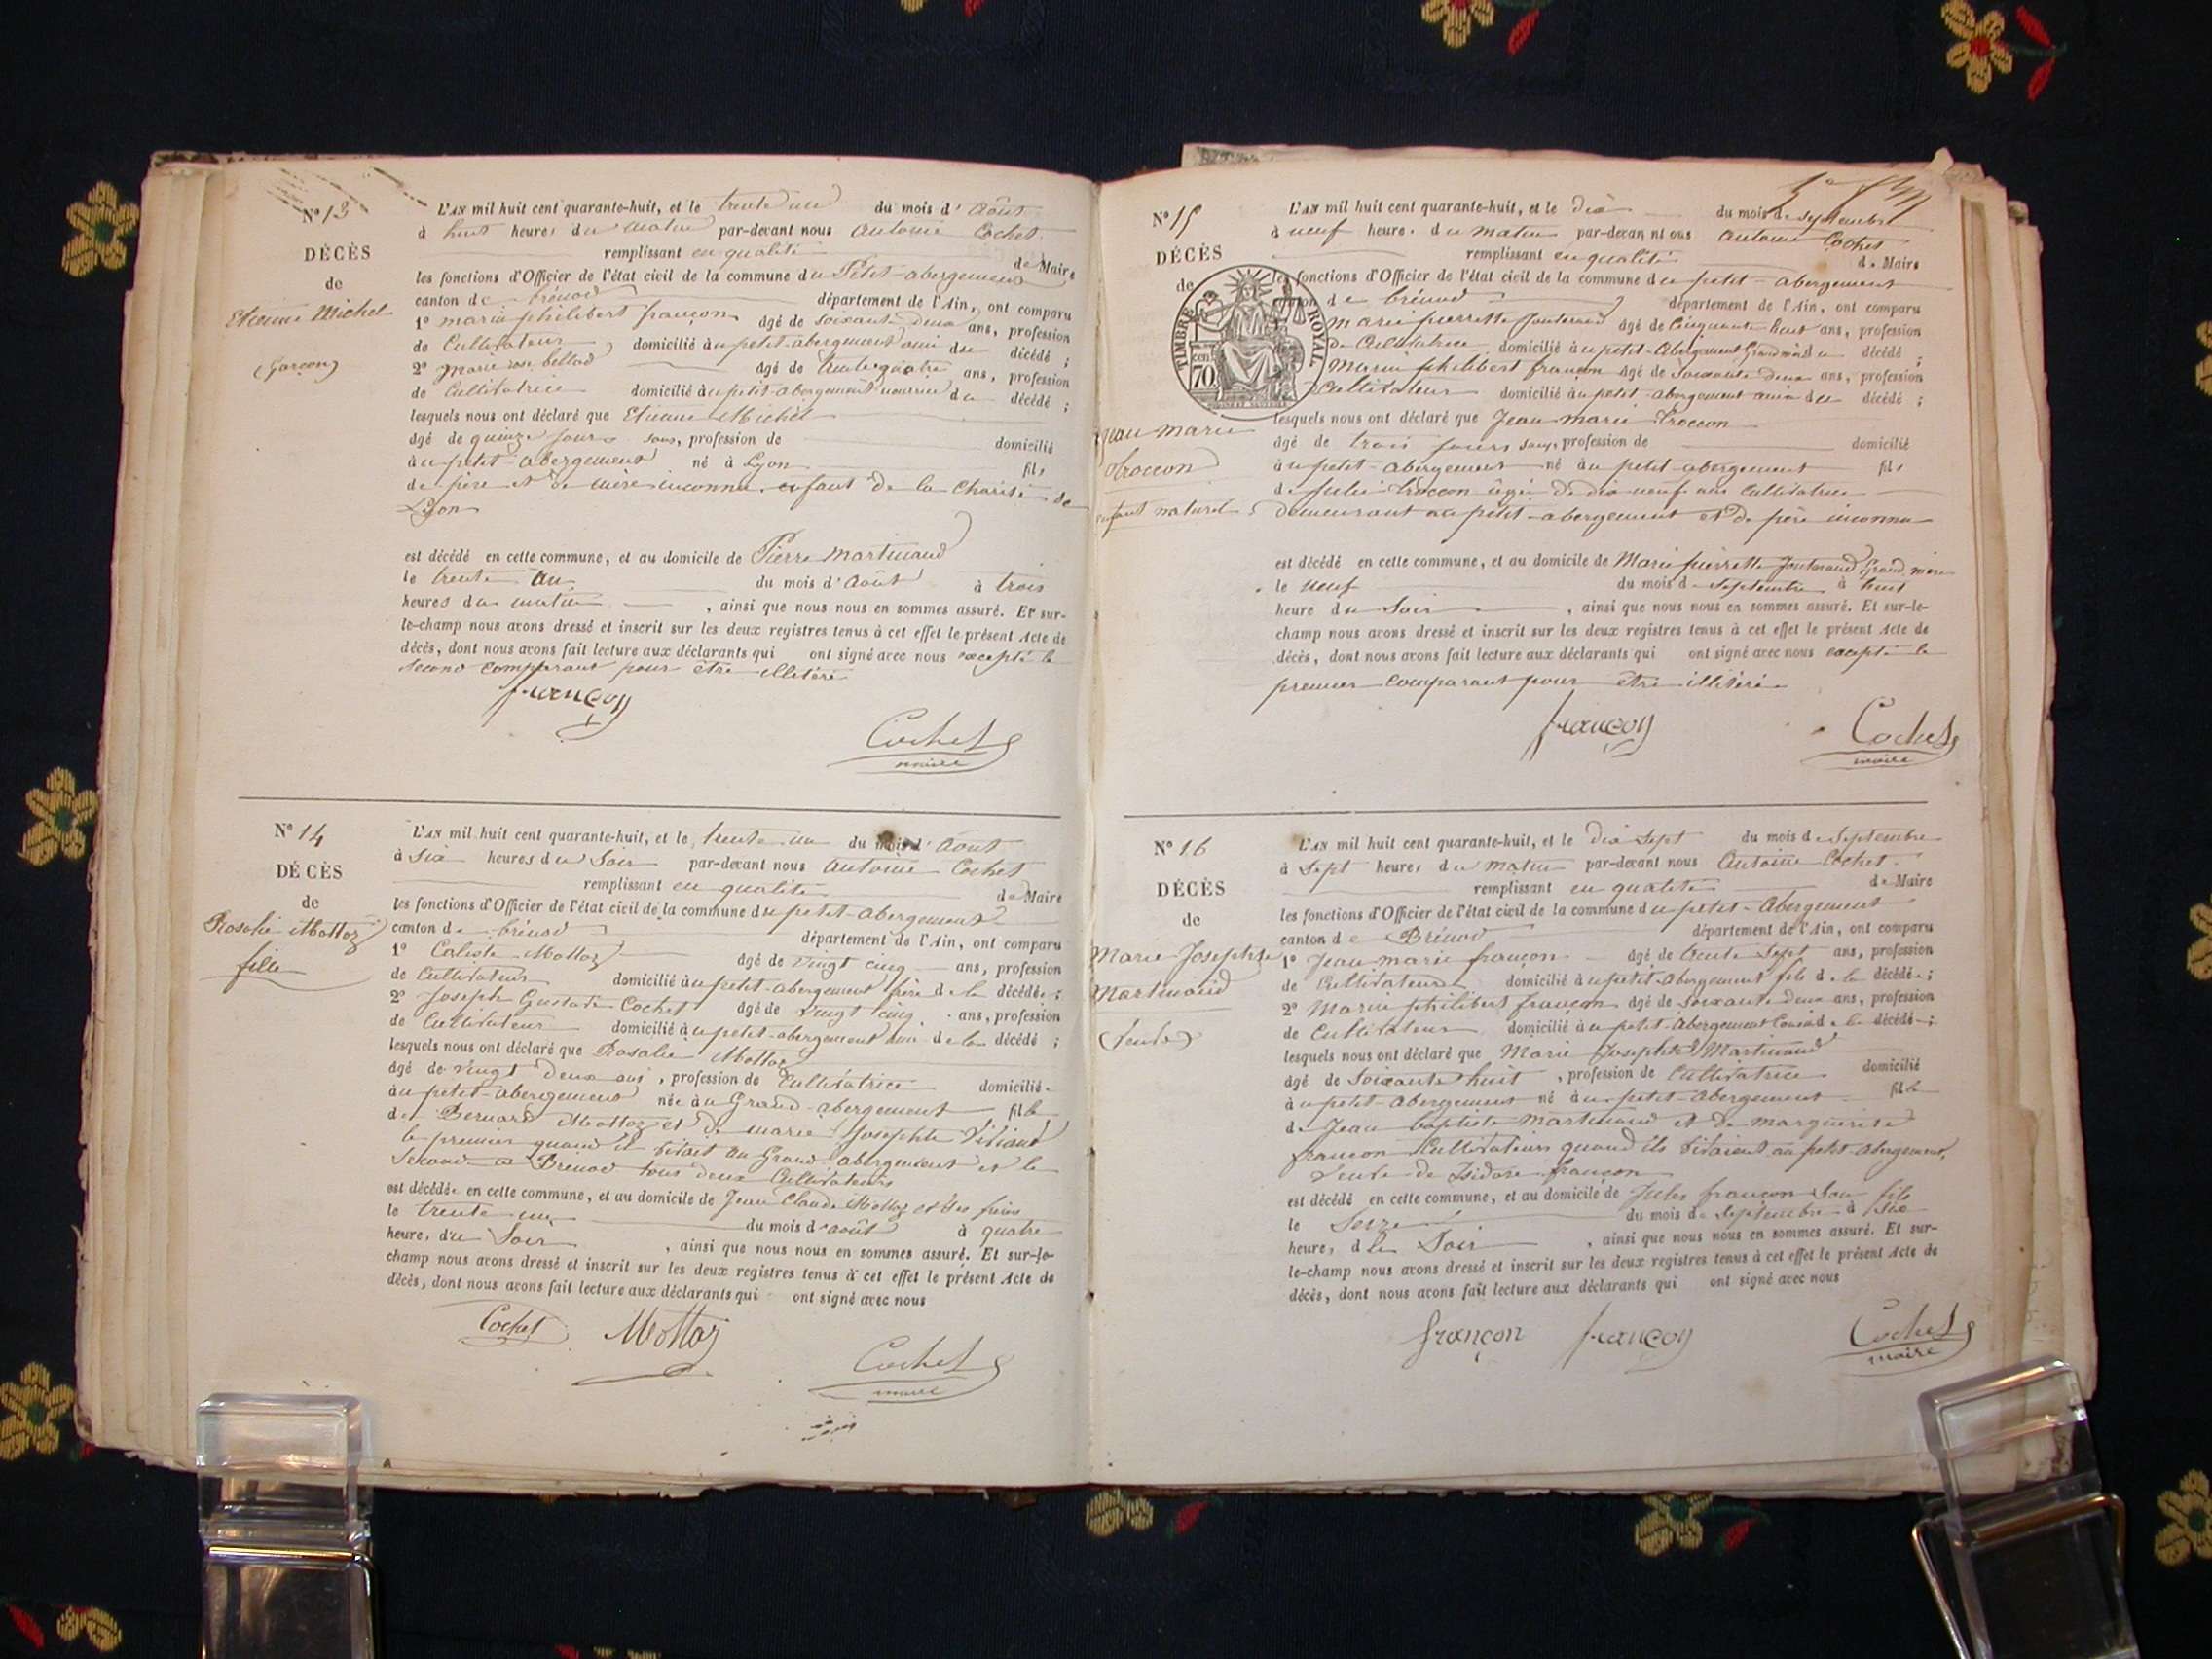 N° 13
DÉCÈS
de
Etienne Michel
(garçon)
L'AN mil huit cent quarante-huit, et le trente un du mois d' Août
à huit heures du matin par-devant nous Antoine Cochet
remplissant en qualité de Maire
les fonctions d'Officier de l'état civil de la commune du Petit-abergement
canton de brénod département de l'Ain, ont comparu
1° marie philibert françon âgé de soixante deux ans, profession
de Cultivateur domicilié au petit-abergement ami du décédé ;
2° Marie rose bellod âgé de trente quatre ans, profession
de Cultivatrice domicilié au petit-abergement nourrice du décédé ;
lesquels nous ont déclaré que Etienne Michel
âgé de quinze jours sans, profession de domicilié
au petit-abergement né à Lyon fils
de père et de mère inconnu. enfant de la Charité de
Lyon
est décédé en cette commune, et au domicile de Pierre Martinand
le trente un du mois d'Août à trois
heures du matin , ainsi que nous nous en sommes assuré. Et sur-
le-champ nous avons dressé et inscrit sur les deux registres tenus à cet effet le présent Acte de
décès, dont nous avons fait lecture aux déclarants qui ont signé avec nous excepté le
second comparant pour être illitéré
françon
Cochet
maire
N° 14
DÉCÈS
de
Rosalie Mottoz
fille
L'AN mil huit cent quarante-huit, et le trente un du mois d' Août
à six heures du Soir par-devant nous Antoine Cochet
remplissant en qualité de Maire
les fonctions d'Officier de l'état civil de la commune du petit-abergement
canton de brénod département de l'Ain, ont comparu
1° Caliste Mottoz âgé de vingt cinq ans, profession
de Cultivateur domicilié au petit-abergement frère de la décédée ;
2° Joseph Gustave Cochet âgé de vingt cinq ans, profession
de Cultivateur domicilié au petit-abergement ami de la décédé ;
lesquels nous ont déclaré que Rosalie Mottoz
âgé de vingt deux ans , profession de Cultivatrice domicilié
au petit-abergement née au Grand-abergement fille
de Bernard Mottoz et de marie Josephte Viviand
le premier quand il vivait au Grand-abergement et la
seconde à Brénod tous deux Cultivateurs
est décédée en cette commune, et au domicile de Jean Claude Mottoz et des frères
le trente un du mois d'août à quatre
heure, du Soir , ainsi que nous nous en sommes assuré. Et sur-le-
champ nous avons dressé et inscrit sur les deux registres tenus à cet effet le présent Acte de
décès, dont nous avons fait lecture aux déclarants qui ont signé avec nous
Cochet Mottoz
Cochet
maire
N° 15
DÉCÈS
de
Jean marie
Troccon
enfant naturel
TIMBRE ROYAL
70
L'AN mil huit cent quarante-huit, et le dix du mois de Septembre
à neuf heure. du matin par-devant nous Antoine Cochet
remplissant en qualité de Maire
les fonctions d'Officier de l'état civil de la commune du petit-abergement
de brénod département de l'Ain, ont comparu
Marie pierrette âgé de Cinquante huit ans, profession
de Cultivatrice domicilié au petit-Abergement Grand mère du décédé ;
Marie philibert françon âgé de soixante deux ans, profession
Cultivateur domicilié au petit-abergement ami du décédé ;
lesquels nous ont déclaré que Jean marie Troccon
âgé de trois jours sans, profession de domicilié
au petit-abergement né au petit-abergement fils
de Julie Troccon âgée de dix neuf ans Cultivatrice
demeurant au petit-abergement et de père inconnu
est décédé en cette commune, et au domicile de Marie pierrette Grand mère
le neuf du mois de Septembre à huit
heure du Soir , ainsi que nous nous en sommes assuré. Et sur-le-
champ nous avons dressé et inscrit sur les deux registres tenus à cet effet le présent Acte de
décès, dont nous avons fait lecture aux déclarants qui ont signé avec nous excepté le
premier comparant pour être illitéré
françon
Cochet
maire
N° 16
DÉCÈS
de
Marie Josephte
Martinand
(veuve)
L'AN mil huit cent quarante-huit, et le dix Sept du mois de Septembre
à Sept heures du matin par-devant nous Antoine Cochet
remplissant en qualité de Maire
les fonctions d'Officier de l'état civil de la commune du petit-Abergement
canton de Brénod département de l'Ain, ont comparu
1° Jean-marie françon âgé de trente Sept ans, profession
de Cultivateur domicilié au petit-abergement fils de la décédée ;
2° Marie philibert françon âgé de soixante deux ans, profession
de Cultivateur domicilié au petit-Abergement Cousin de la décédée ;
lesquels nous ont déclaré que Marie Josephte Martinand
âgé de soixante huit , profession de Cultivatrice domicilié
au petit-abergement né au petit-abergement fille
de Jean baptiste Martinand et de marguerite
françon Cultivateurs quand ils vivaient au petit-abergement,
veuve de Isidore françon
est décédé en cette commune, et au domicile de Jules françon son fils
le Seize du mois de Septembre à Six
heure, du Soir , ainsi que nous nous en sommes assuré. Et sur-
le-champ nous avons dressé et inscrit sur les deux registres tenus à cet effet le présent Acte de
décès, dont nous avons fait lecture aux déclarants qui ont signé avec nous
françon françon
Cochet
maire